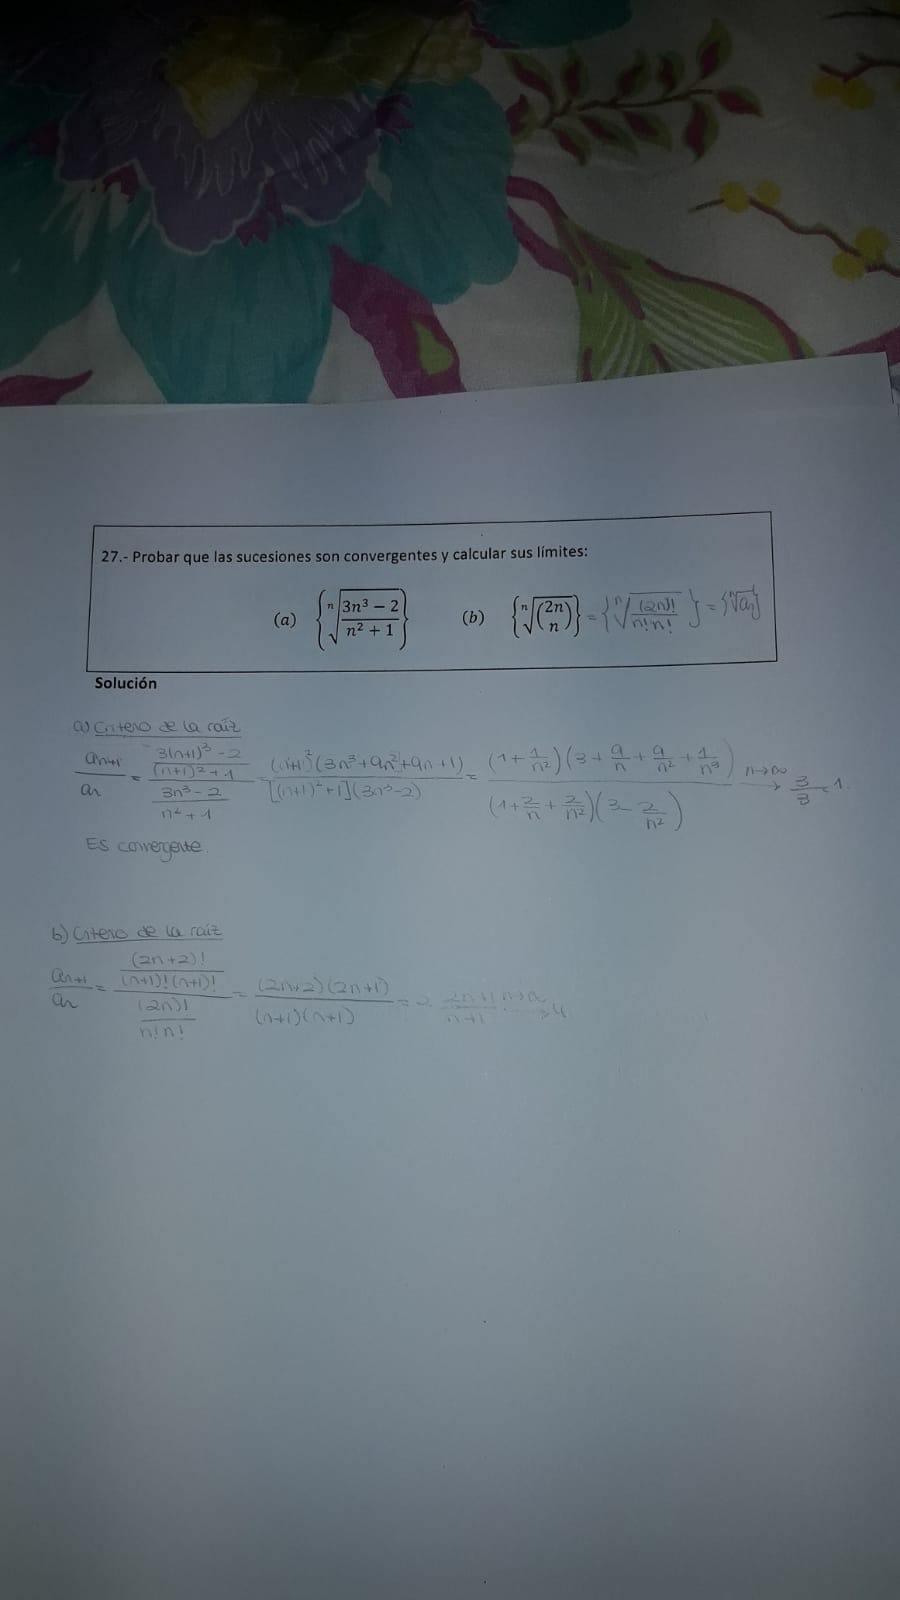 27.- Probar que las sucesiones son convergentes y calcular sus límites:
(a) {ⁿ√((3n³ − 2)/(n² + 1))} (b) {ⁿ√(2n n)} = {ⁿ√((2n)!/(n!n!))} = {ⁿ√aₙ}
Solución
a) Critero de la raíz
aₙ₊₁/aₙ = ((3(n+1)³ - 2)/((n+1)² + 1))/((3n³ - 2)/(n² + 1)) = ((n²+1)(3n³+9n²+9n+1))/([(n+1)²+1](3n³-2)) = ((1+1/n²)(3+9/n+9/n²+1/n³))/((1+2/n+2/n²)(3-2/n²)) n→∞ → 3/3 = 1.
Es convergente.
b) Critero de la raíz
aₙ₊₁/aₙ = ((2n+2)!/((n+1)!(n+1)!))/((2n)!/(n!n!)) = ((2n+2)(2n+1))/((n+1)(n+1)) = 2 (2n+1)/(n+1) n→∞ → 4